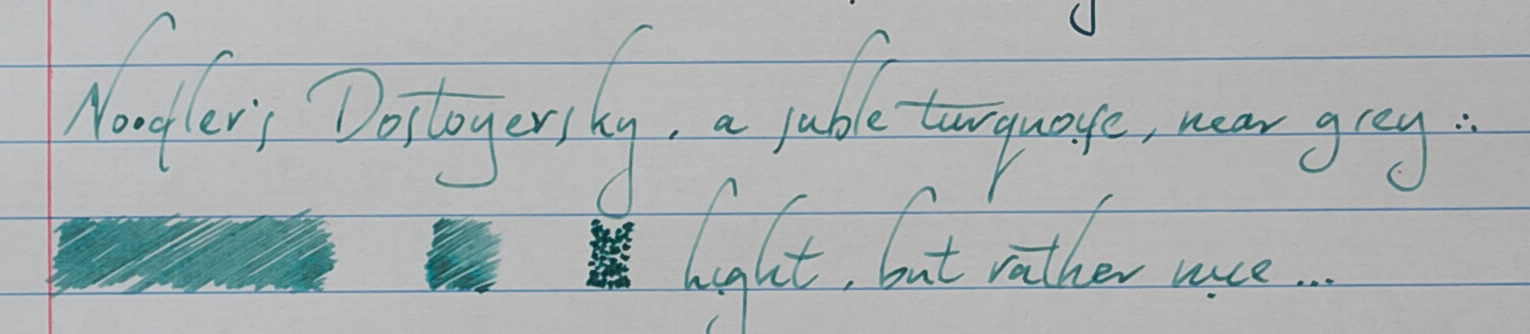 Noodler's Dostoyevsky, a suble turquoise, near grey ∴
light, but rather nice ...